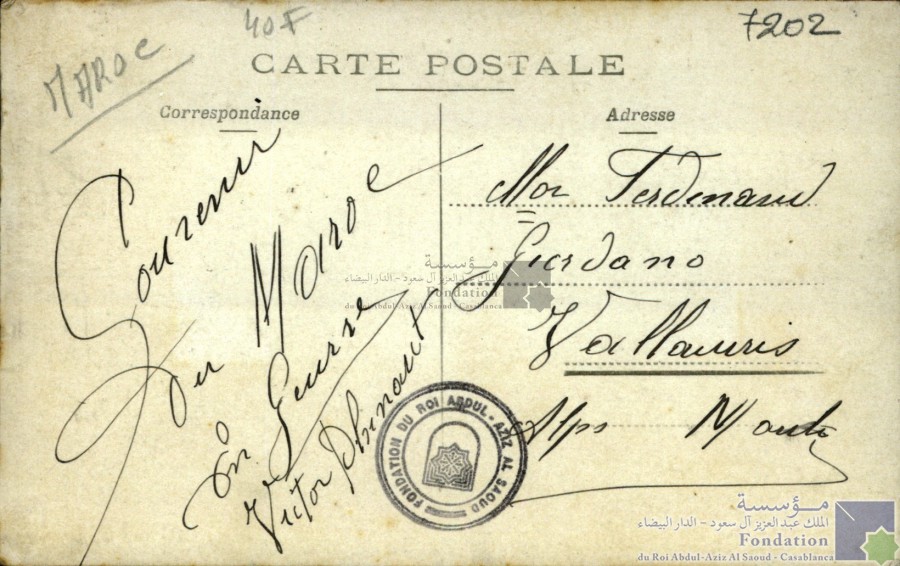 MAROC
40F
7202
CARTE POSTALE
Correspondance
Souvenir
du Maroc
En Guerre
Victor
Adresse
Mor Ferdinand
Giordano
Vallauris
Alps Marits
مؤسسة
الملك عبد العزيز آل سعود - الدار البيضاء
Fondation
du Roi Abdul-Aziz Al Saoud - Casablanca
FONDATION DU ROI ABDUL-AZIZ AL SAOUD
مؤسسة
الملك عبد العزيز آل سعود - الدار البيضاء
Fondation
du Roi Abdul-Aziz Al Saoud - Casablanca